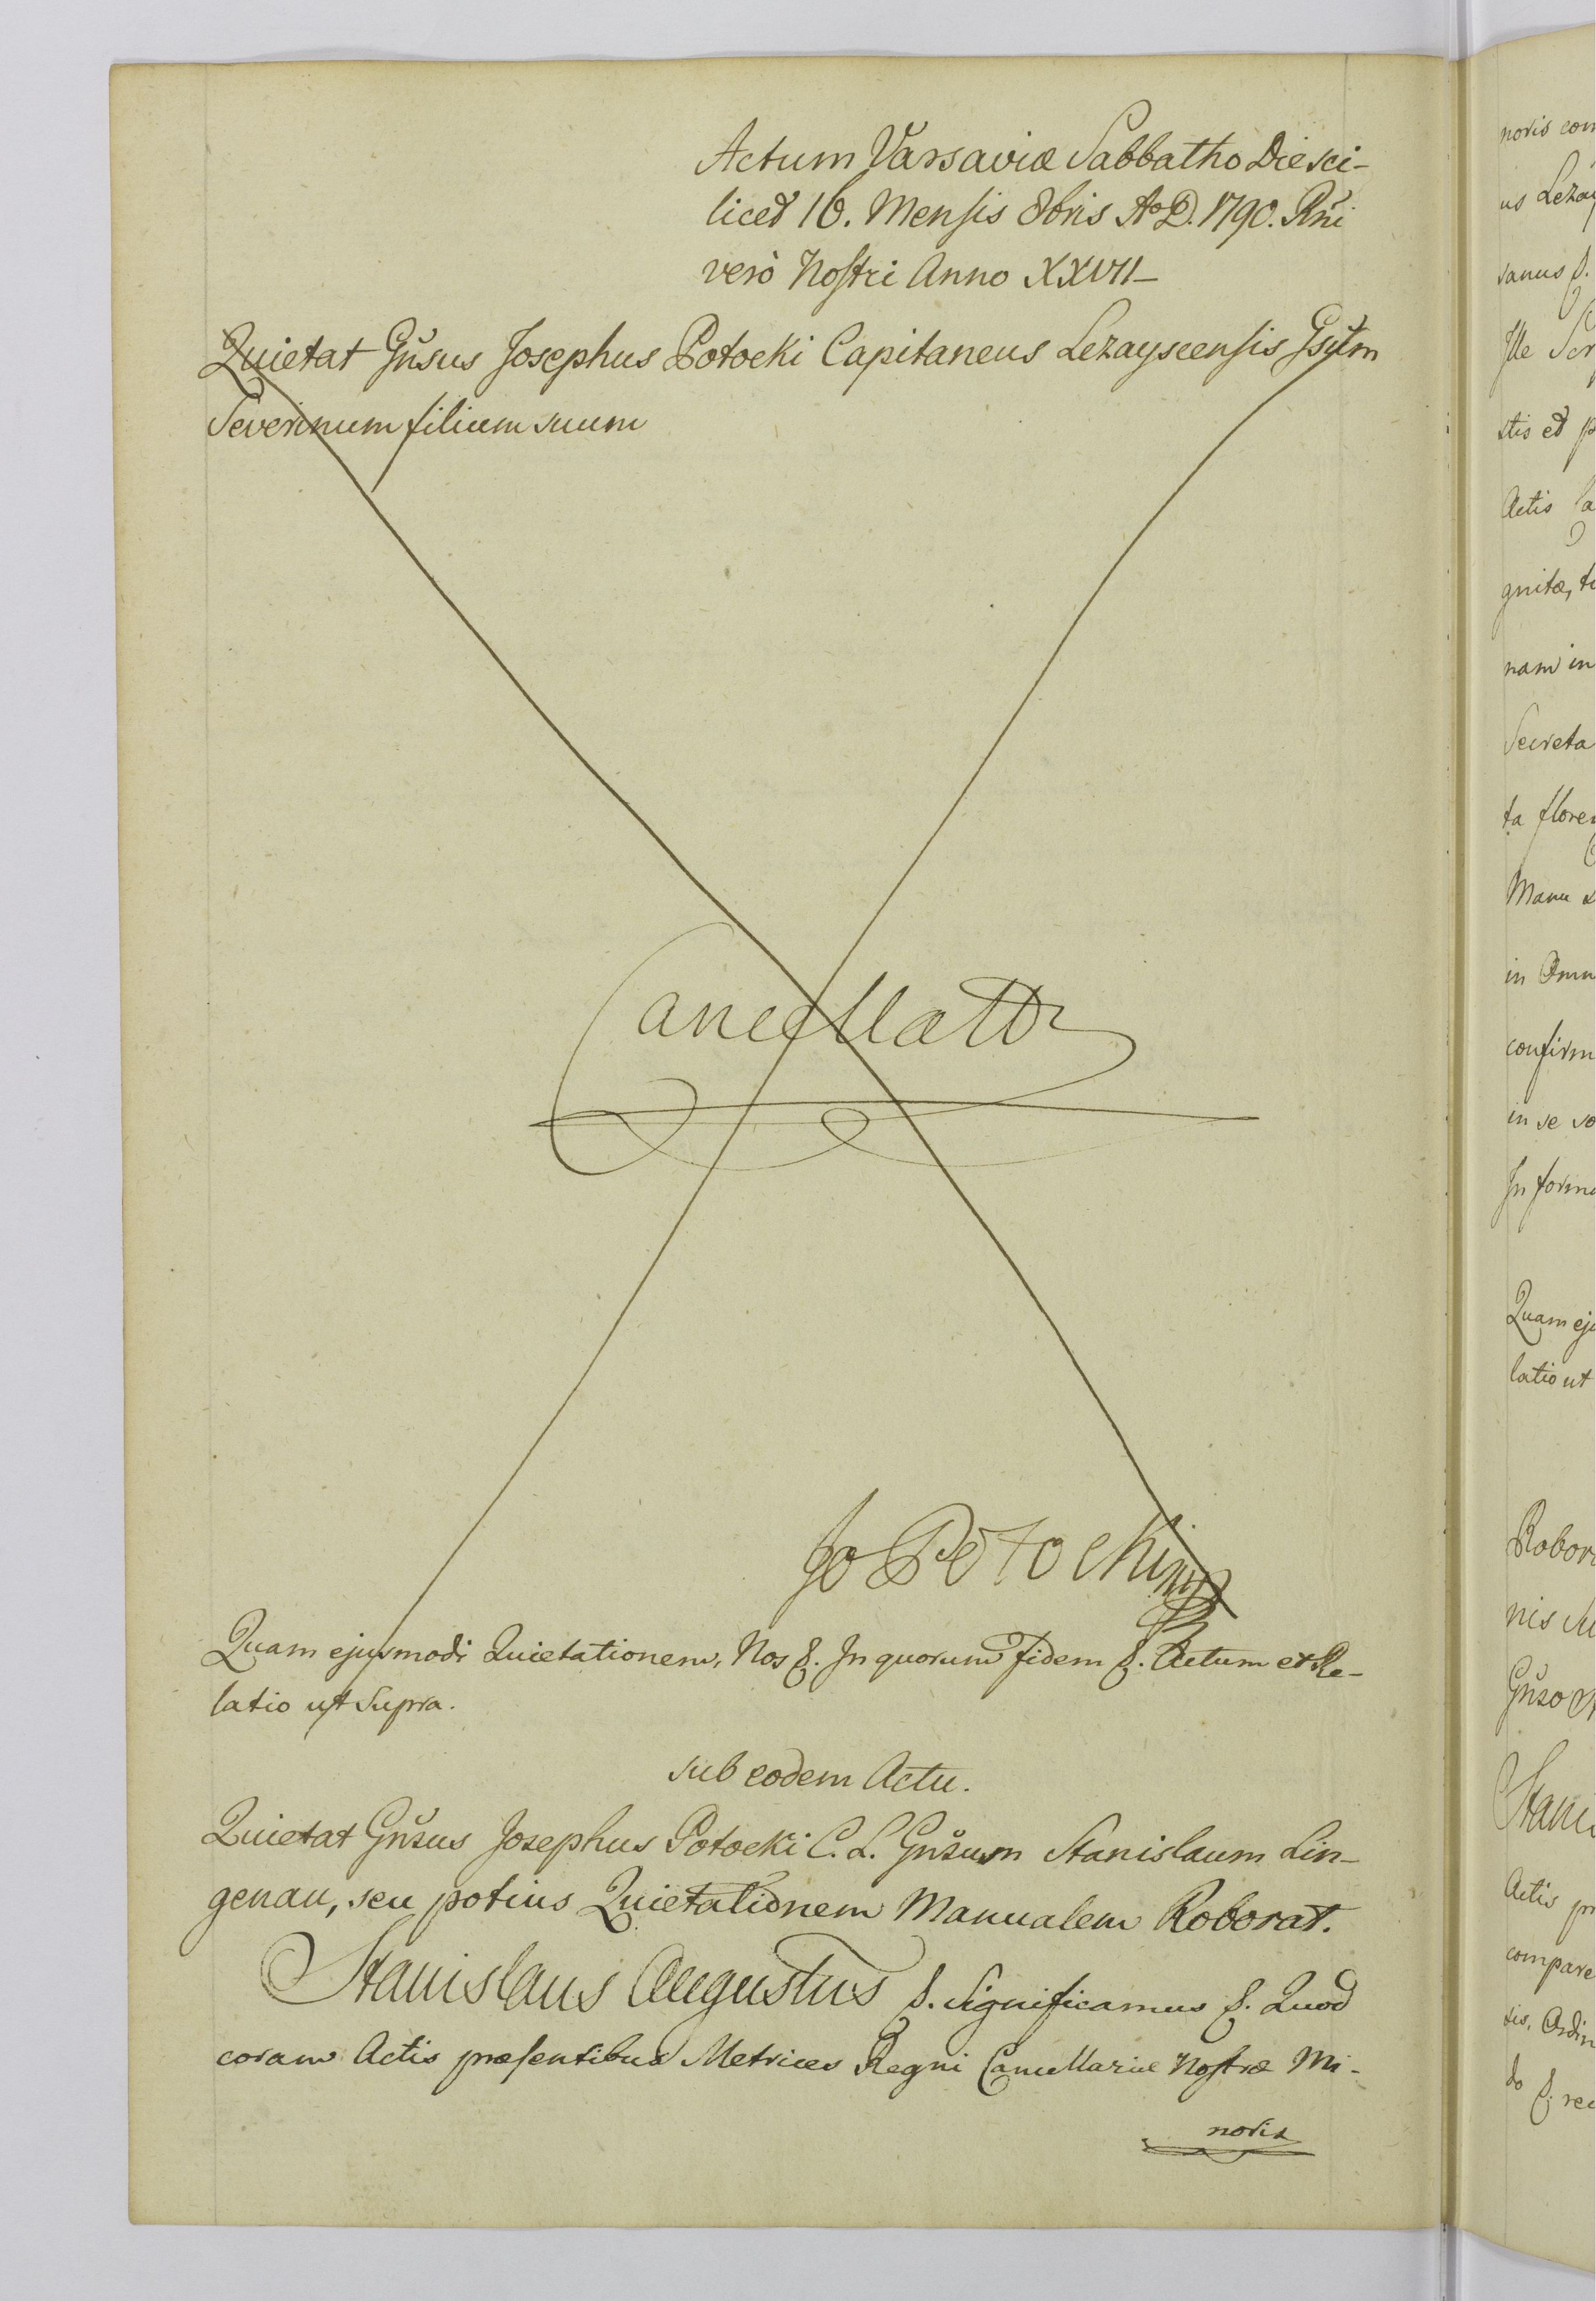 Actum Varsaviæ Sabbatho Die sci-
licet 16. Mensis 8bris Ao D. 1790. Rñi
verò Nostri Anno XXVII-
Quietat Gñsus Josephus Potocki Capitaneus Lezayscensis
Severinum filium suum
Cancellatr
Jo Potocki mp
Quam ejusmodi Quietationem, Nos &. In quorum fidem &. Actum et Re-
latio ut Supra.
sub eodem Actu.
Quietat Gñsus Josephus Potocki C. L. Gñsum Stanislaum Lin-
genau, seu potius Quietationem Manualem Roborat.
Stanislaus Augustus &. Significamus &. Quod
coram Actis præsentibus Metrices Regni Cancellariæ Nostræ Mi-
noris
noris
us
sanus &.
Ille
stis et
Actis
gnitæ,
nam in
Secreta
ta
Manu
in
confirm
in se
In forma
Quam
latio ut
Robor
nis
Gñso
Stani
Actis
compare
sis,
do &.